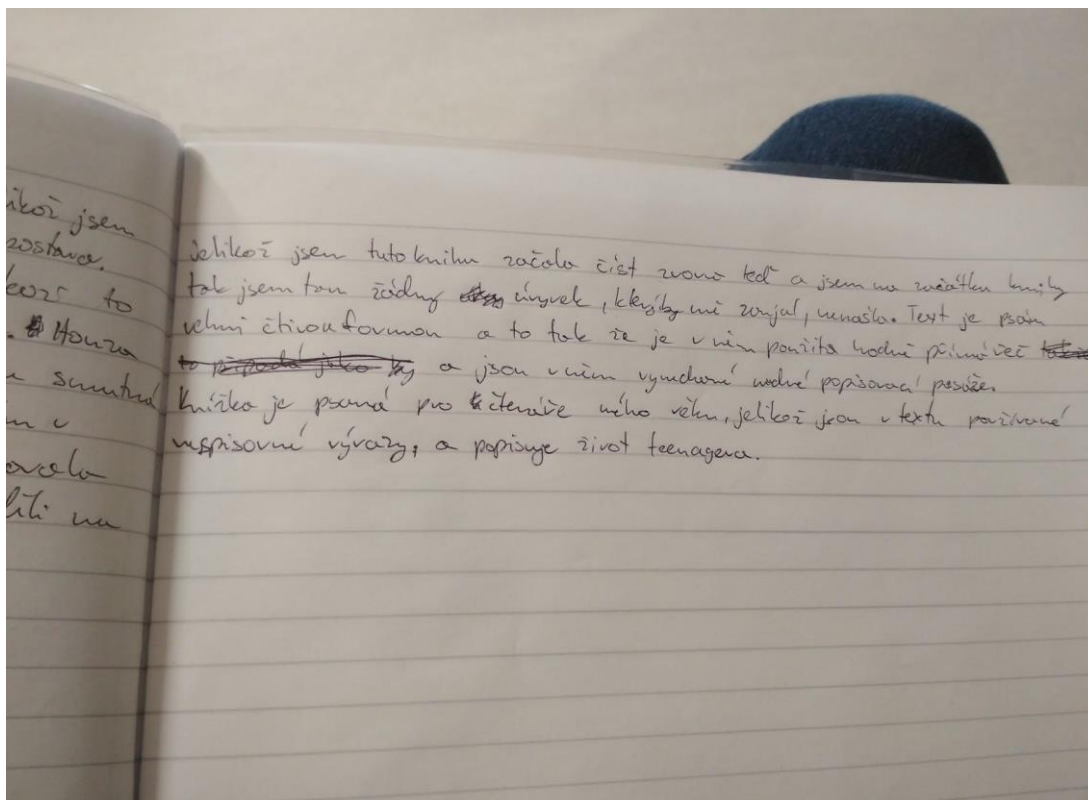 ikož jsem
postava.
kozí to
. Honza
u smutná
m v
ovala
líli na
jelikož jsem tuto knihu začala číst zrovna teď a jsem na začátku knihy
tak jsem tam žádný úryvek, který by mě zaujal, nenašla. Text je psán
velmi čtivou formou a to tak že je v něm použita hodně přímá řeč
a jsou v něm vynechané nudné popisovací pasáže.
Knížka je psaná pro čtenáře mého věku, jelikož jsou v textu používané
nespisovné výrazy, a popisuje život teenagera.